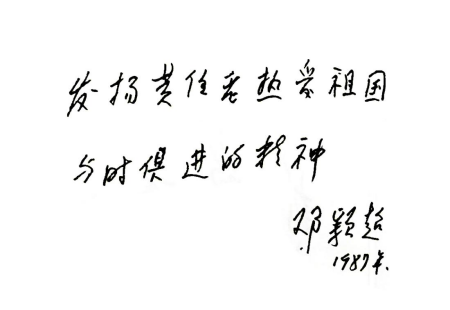 发扬黄任老热爱祖国
与时俱进的精神
邓颖超
1987年.